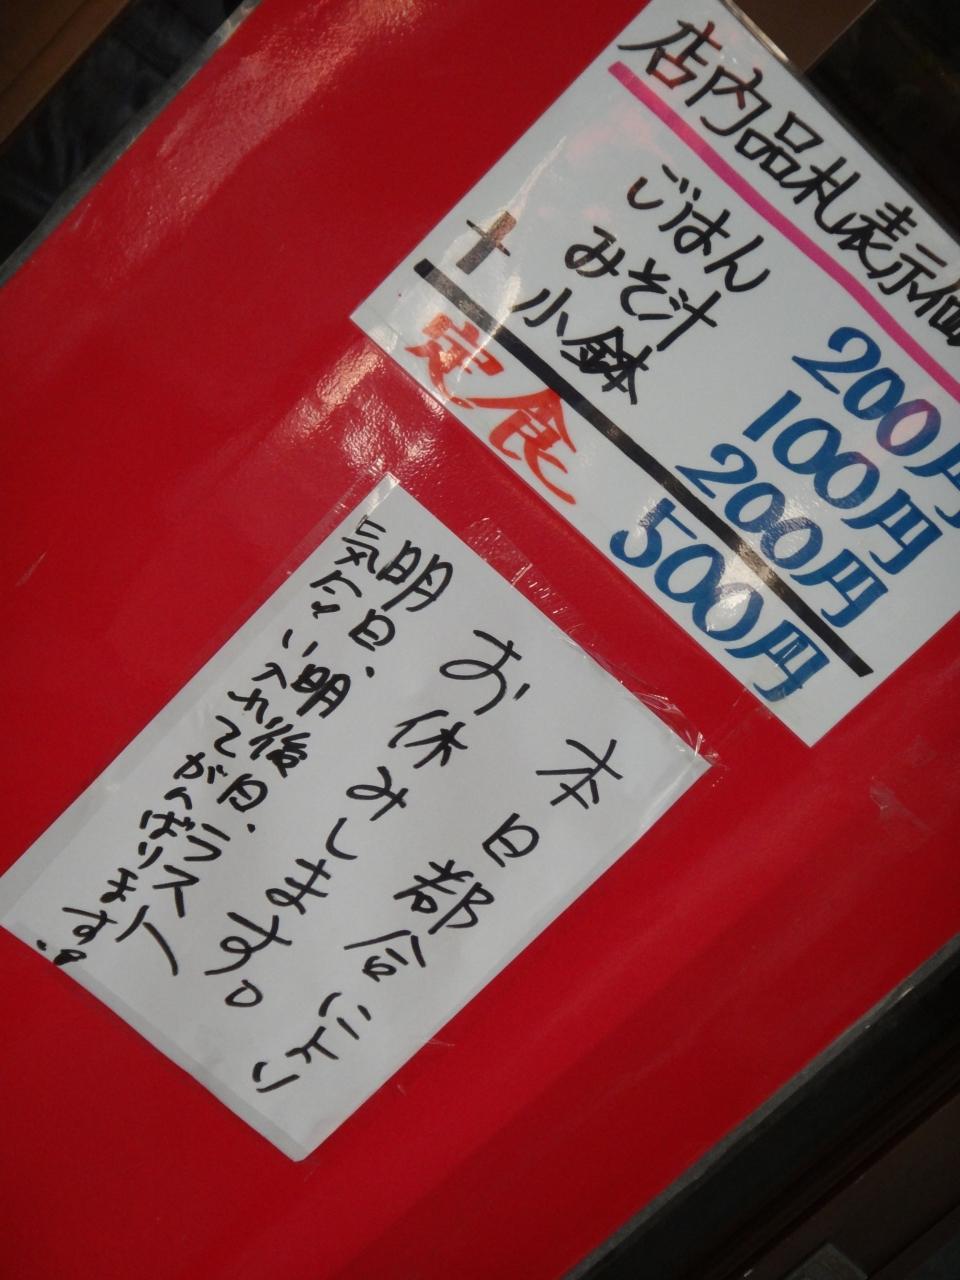 店内品札表示価
ごはん 200円
みそ汁 100円
＋ 小鉢 200円
定食 500円
本日都合により
お休みします。
明日、明後日、ラスト
気合い入れてがんばります!!